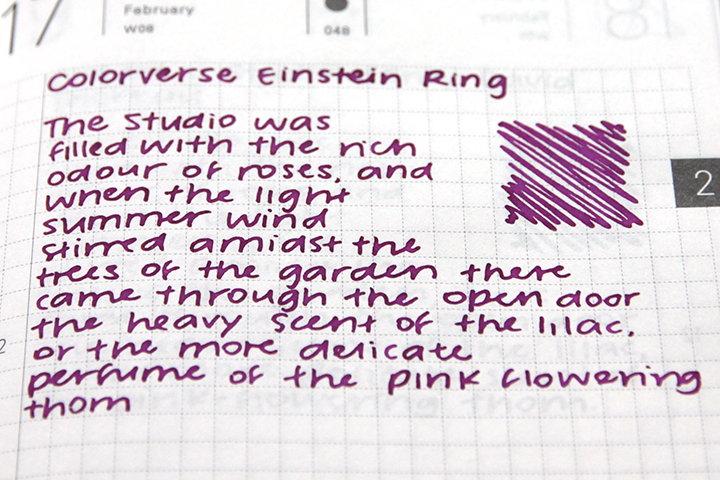 17
February
W08
048
Colorverse Einstein Ring
The studio was
filled with the rich
odour of roses, and
when the light
summer wind
stirred amidst the
trees of the garden there
came through the open door
the heavy scent of the lilac,
or the more delicate
perfume of the pink flowering
thorn
2
2